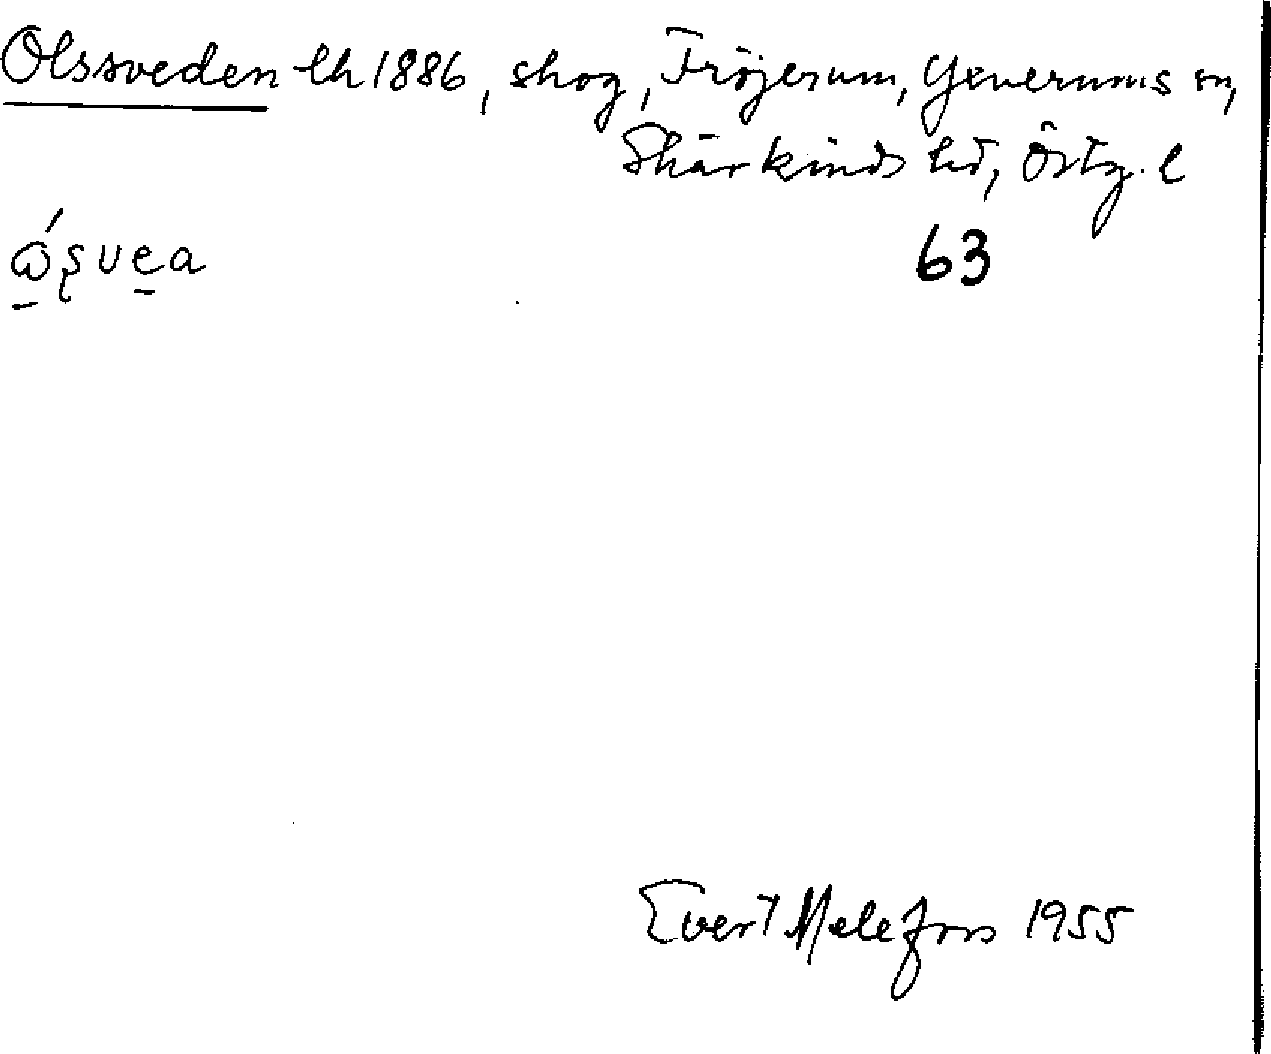 Olssveden lh 1886, skog, Fröjerum, Yxnerums sn,
Skärkinds hd, Östg. l
ώ̱ʂve̱a
63
Evert Melefors 1955